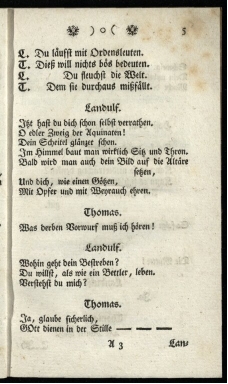 ) o ( 3
L. Du läufst mit Ordensleuten.
T. Dieß will nichts bös bedeuten.
L. Du fleuchst die Welt.
T. Dem sie durchaus mißfällt.
Landulf.
Itzt hast du dich schon selbst verrathen,
O edler Zweig der Aquinaten!
Dein Scheitel glänzet schon.
Im Himmel baut man wirklich Sitz und Thron.
Bald wird man auch dein Bild auf die Altäre
setzen,
Und dich, wie einen Götzen,
Mit Opfer und mit Weyrauch ehren.
Thomas.
Was derben Vorwurf muß ich hören!
Landulf.
Wohin geht dein Bestreben?
Du willst, als wie ein Bettler, leben.
Verstehst du mich?
Thomas.
Ja, glaube sicherlich,
GOtt dienen in der Stille — — —
A 3 Lan-